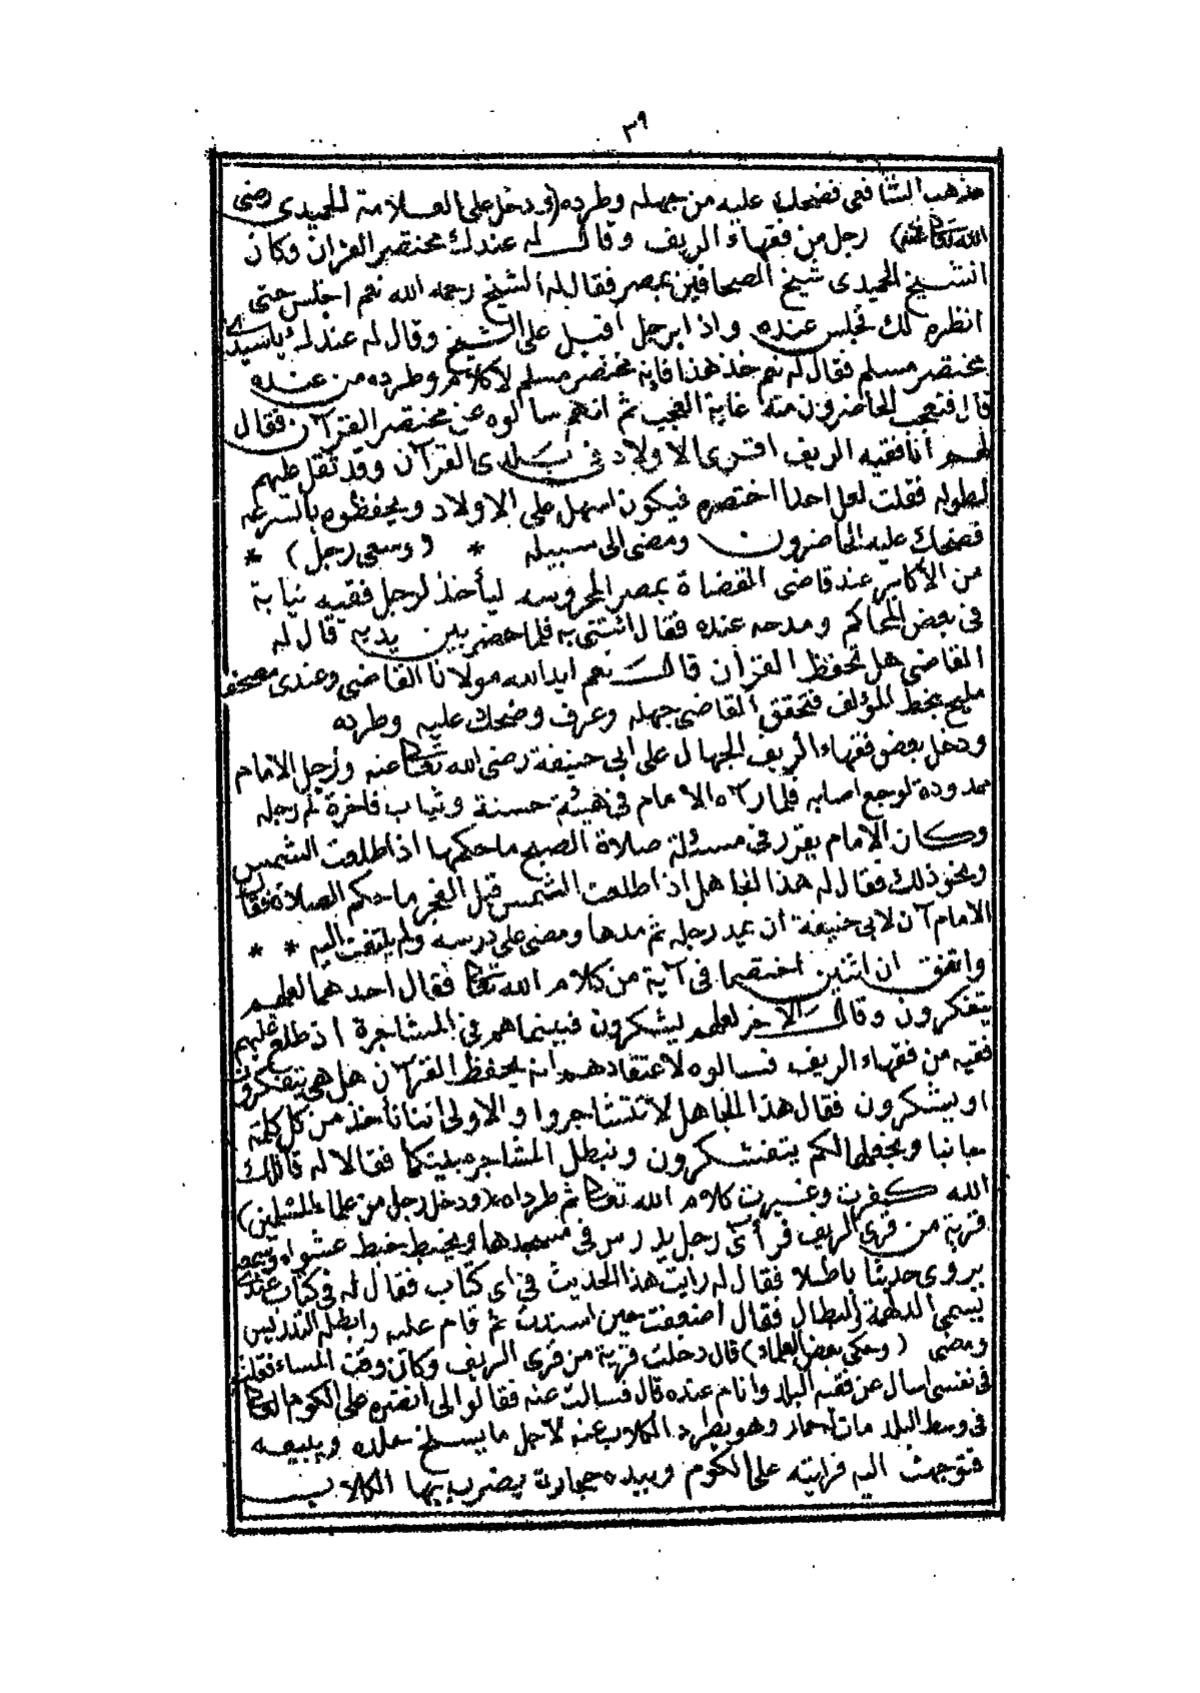 ٣٩
مذهب الشافعى فضحك عليه من جهله وطرده (ودخل على العلامة الحميدى رضى
الله تعالى عنه) رجل من فقهاء الريف وقال له عندك مختصر القران وكان
الشيخ الحميدى شيخ الصحافين بمصر فقال له الشيخ رحمه الله نعم اجلس حتى
انظره لك فجلس عنده واذا برجل أقبل على الشيخ وقال له عندك ياسيدى
مختصر مسلم فقال له نعم خذ هذا فانه مختصر مسلم لا كلام وطرده من عنده
قال فتعجب الحاضرون منه غاية العجب ثم انهم سالوه عن مختصر القرآن فقال
لهم أنا فقيه الريف اقرى الاولاد فى بلدى القرآن وقد ثقل عليهم
لطوله فقلت لعل احدا اختصره فيكون اسهل على الاولاد ويحفظوه بالسرعه
فضحك عليه الحاضرون ومضى الى سبيله * (وسعى رجل) *
من الأكابر عند قاضى القضاة بمصر المحروسه ليأخذ لرجل فقيه نيابة
فى بعض المحاكم ومدحه عنده فقال ائتنى به فلما حضر بين يديه قال له
القاضى هل تحفظ القرآن قال نعم ايد الله مولانا القاضى وعندى مصحف
مليح بخط المؤلف فتحقق القاضى جهله وعرف وضحك عليه وطرده
ودخل بعض فقهاء الريف الجهال على ابى حنيفة رضى الله تعالى عنه ورجل الامام
ممدودة لوجع اصابه فلما رآه الامام فى هيئة حسنة وثياب فاخرة لم رجله
وكان الامام يقرر فى مسئلة صلاة الصبح ما حكمها اذا طلعت الشمس
ونحو ذلك فقال له هذا الجاهل اذا طلعت الشمس قبل الفجر ما حكم الصلاة فقال
الامام آن لابى حنيفة ان يمد رجله ثم مدها ومضى على درسه ولم يلتفت اليه * *
واتفق ان اثنين اختصما فى آية من كلام الله تعالى فقال احدهما لعلهم
يتفكرون وقال الآخر لعلهم يشكرون فبينما هم فى المشاجرة اذ طلع عليهم
فقيه من فقهاء الريف فسالوه لاعتقادهم انه يحفظ القرآن هل هى يتفكرون
او يشكرون فقال هذا الجاهل لا تتشاجروا والاولى اننا نأخذ من كل كلمة
جانبا ونجعلها لكم يتفشكرون ونبطل المشاجره بينكما فقالا له قاتلك
الله كفرت وغيرت كلام الله تعالى ثم طرداه (ودخل رجل من علماء المسلمين)
قرية من قرى الريف فرأى رجل يدرس فى مسجدها ويخبط خبط عشواء وسمعه
يروى حديثا باطلا فقال له رايت هذا الحديث فى اى كتاب فقال له فى كتاب عندى
يسمى الدلهمة والبطال فقال اضعفت حين اسندت ثم قام عليه وابطله التدريس
ومضى (وحكى بعض العلماء) قال دخلت قرية من قرى الريف وكان وقت المساء فقلت
فى نفسى اسال عن فقيه البلد وانام عنده قال فسالت عنه فقالوا لى انضره على الكوم
فى وسط البلد مات حمار وهو يطرد الكلاب عنه لاجل ما يسلخ جلده ويبيعه
فتوجهت اليه فرايته على الكوم وبيده حجارة يضرب بها الكلاب